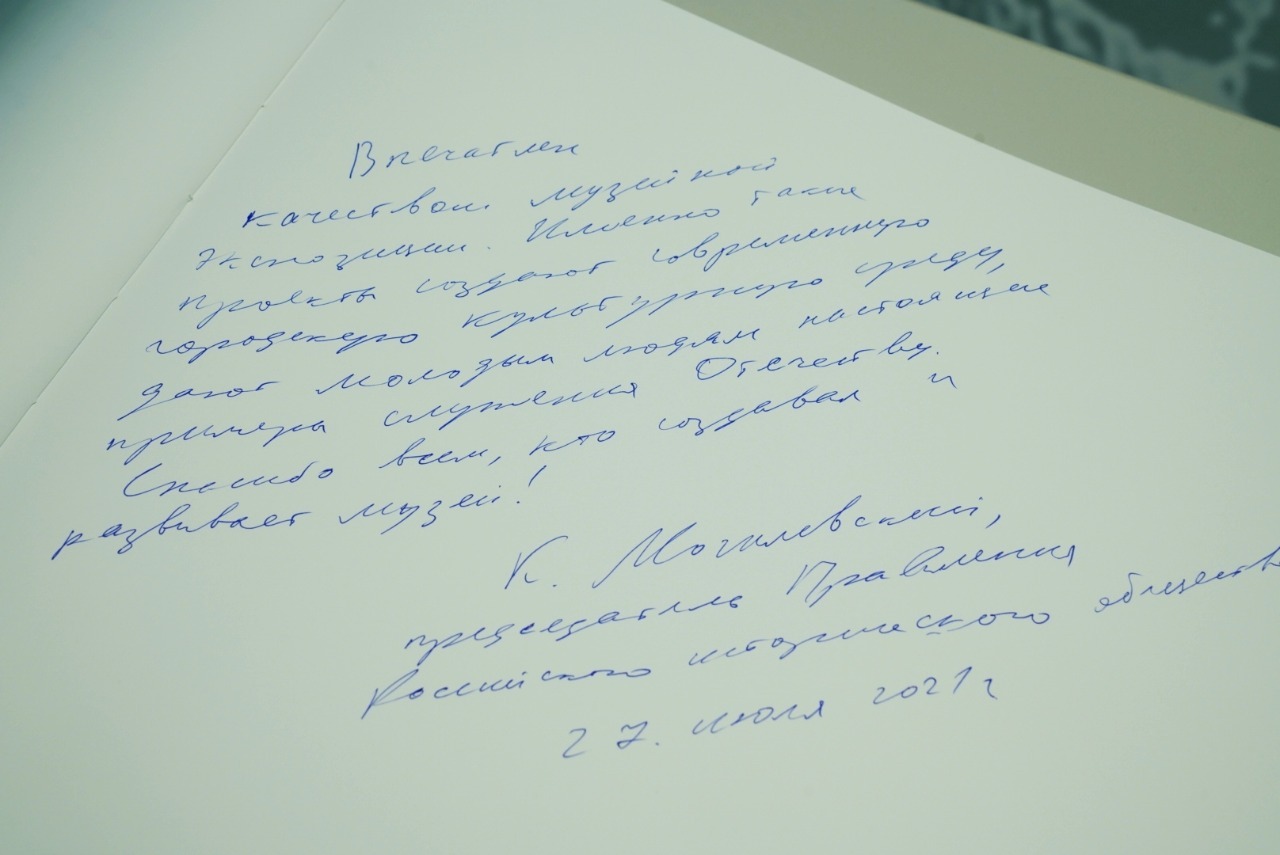 Впечатлен
качеством музейной
экспозиции. Именно такие
проекты создают современную
городскую культурную среду,
дают молодым людям настоящие
примеры служения Отечеству.
Спасибо всем, кто создавал и
развивает музей!
К. Могилевский,
председатель Правления
Российского исторического общества
27. июля 2021 г